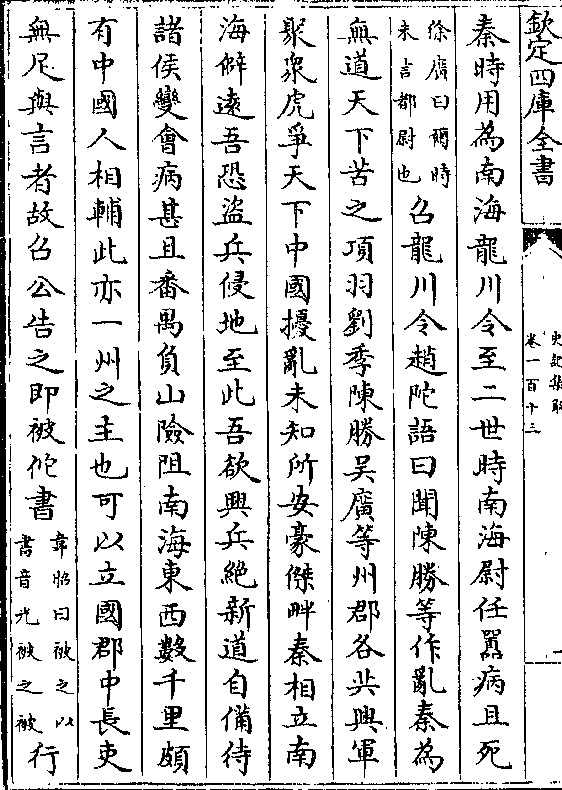 欽定四庫全書
史記集解
卷一百十三
秦時用為南海龍川令至二世時南海尉任囂病且死
徐廣曰爾時
未言都尉也
召龍川令趙陀語曰聞陳勝等作亂秦為
無道天下苦之項羽劉季陳勝吳廣等州郡各共興軍
聚衆虎爭天下中國擾亂未知所安豪傑畔秦相立南
海僻遠吾恐盜兵侵地至此吾欲興兵絶新道自備待
諸侯變會病甚且番禺負山險阻南海東西數千里頗
有中國人相輔此亦一州之主也可以立國郡中長吏
無足與言者故召公告之即被佗書
韋昭曰被之以
書音光被之被
行